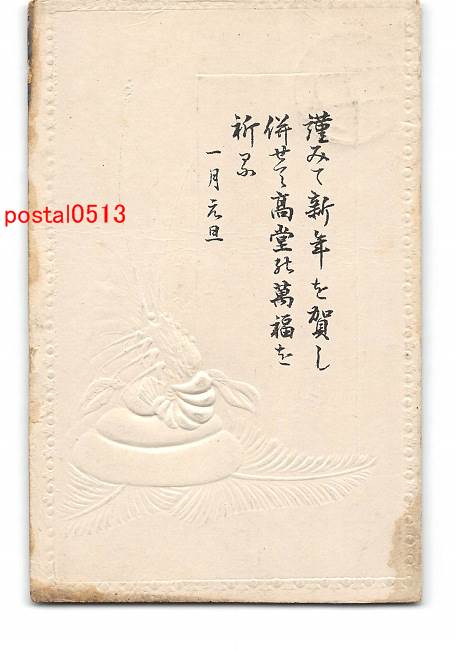 謹みて新年を賀し
併せて高堂の萬福を
祈る
一月元旦
postal0513